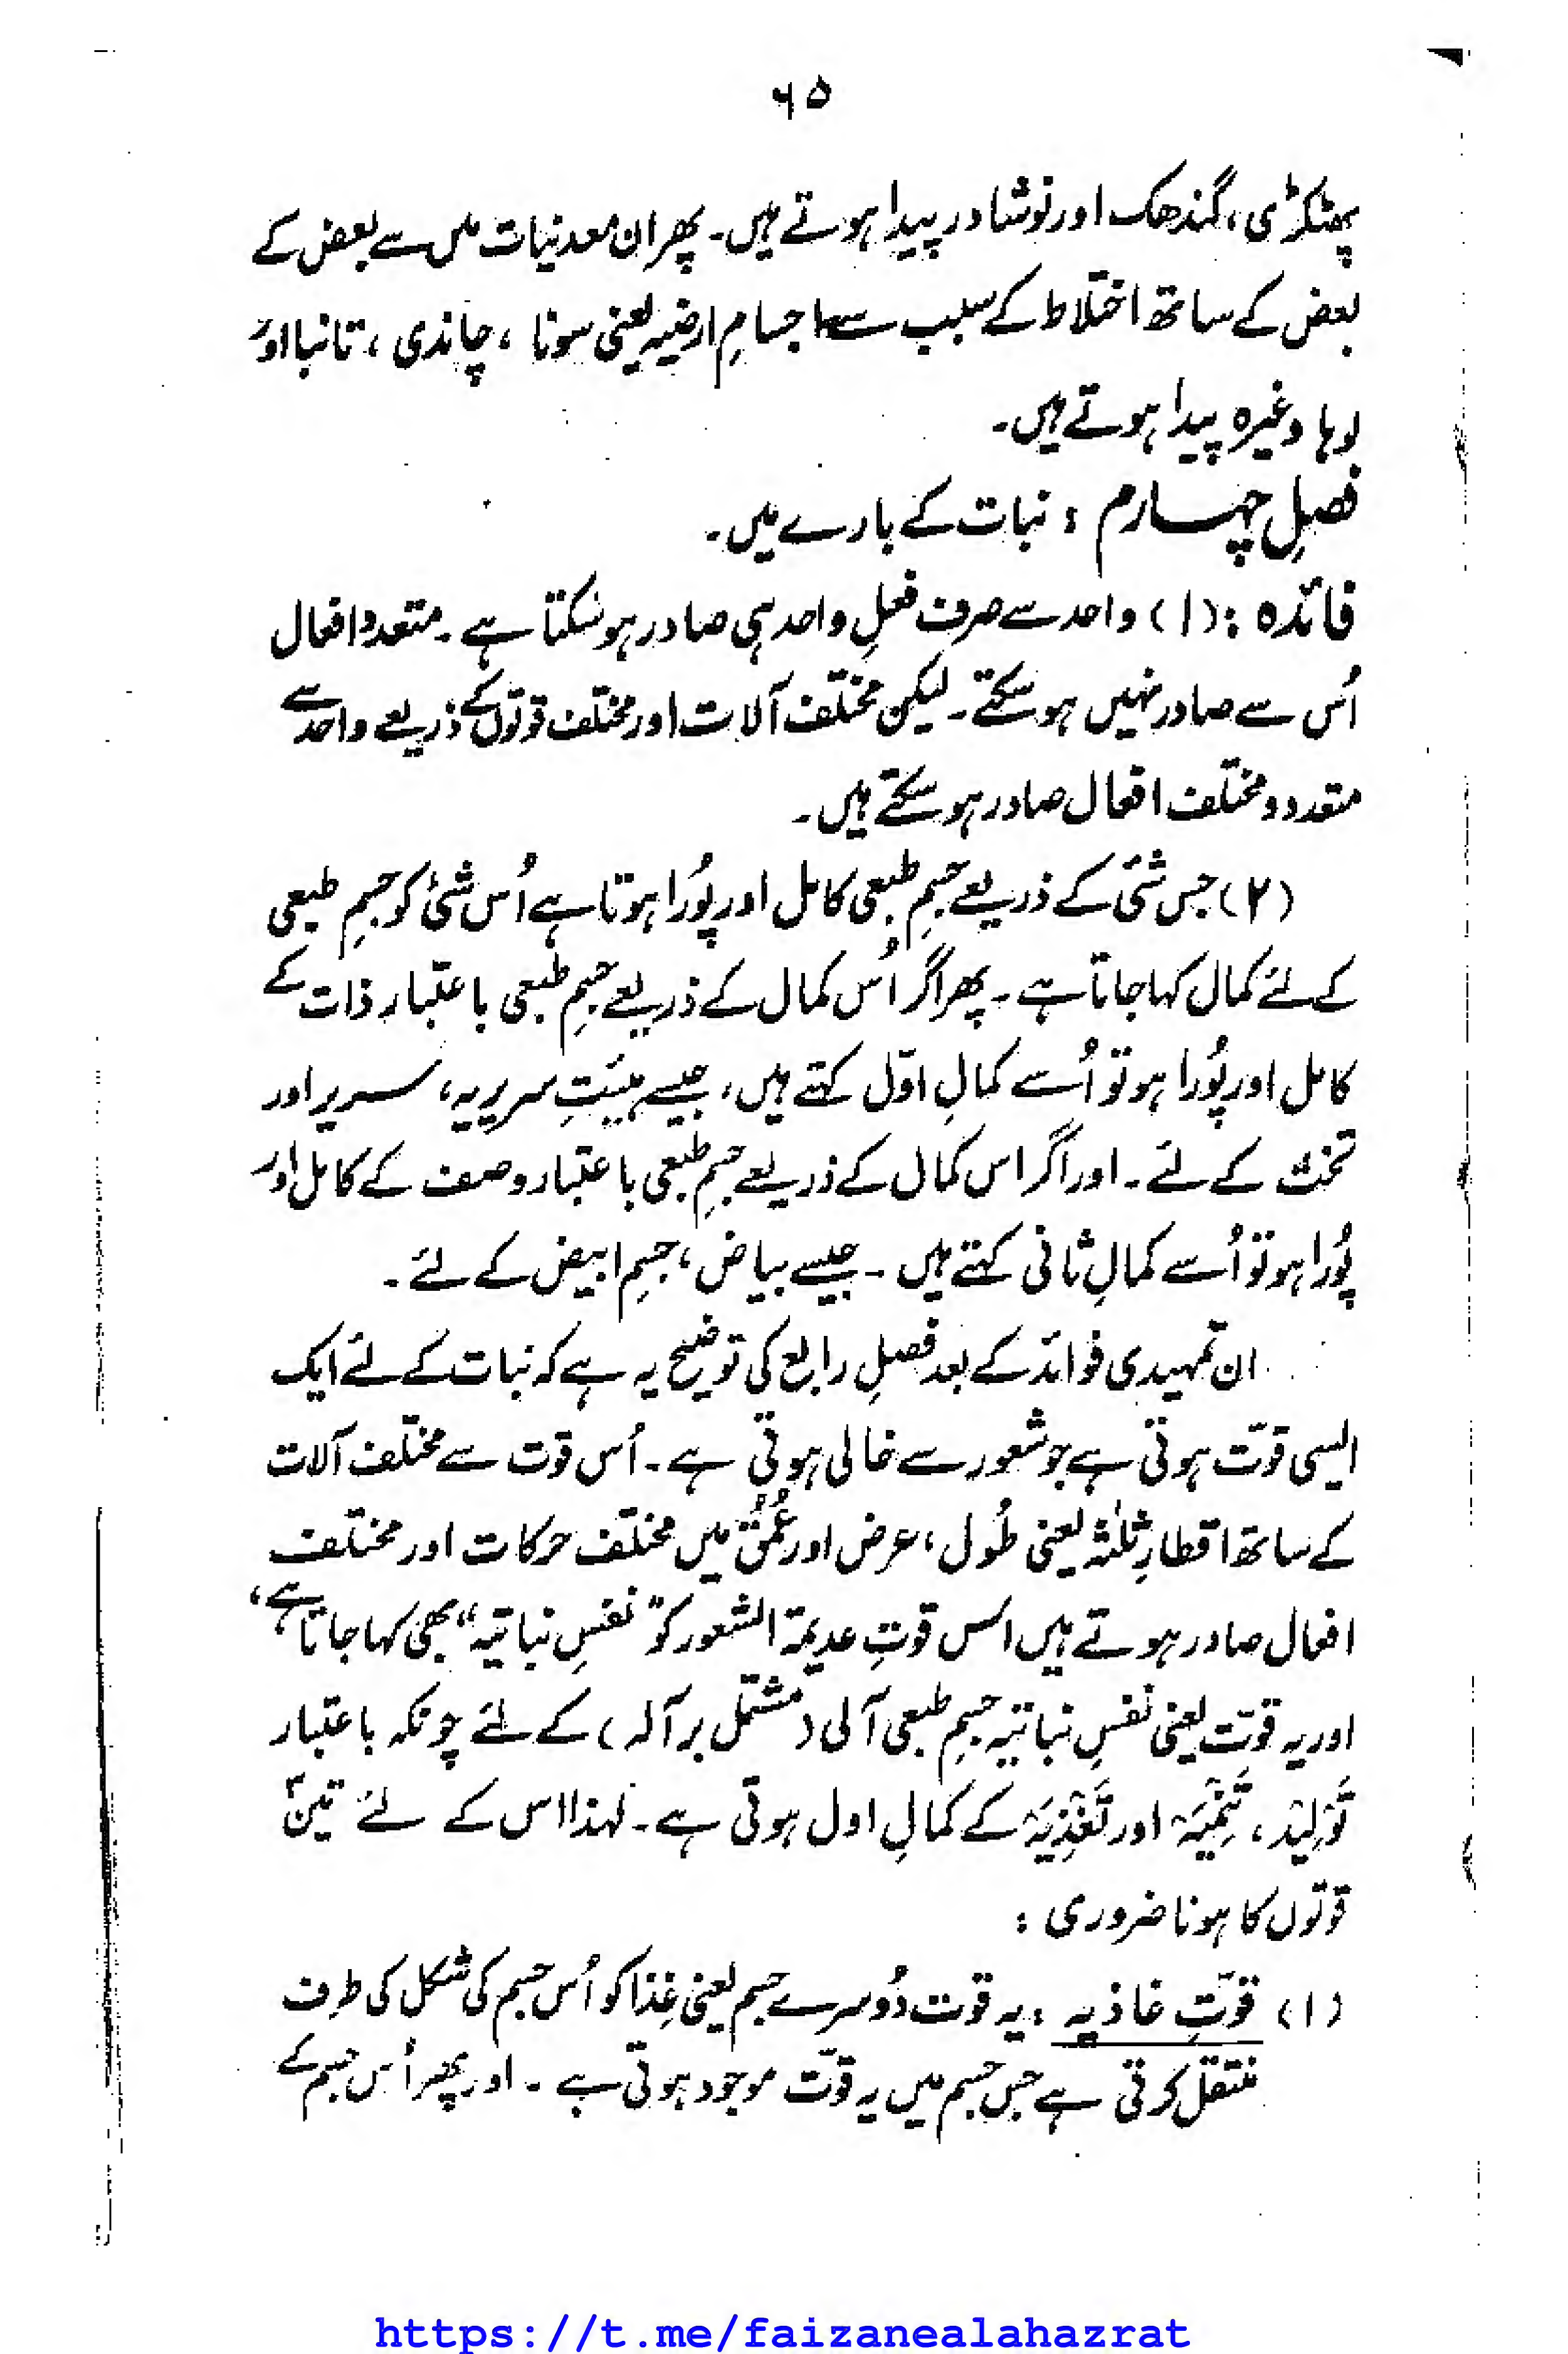 ۶۵
پھٹکڑی، گندھک اور نوشادر پیدا ہوتے ہیں۔ پھر ان معدنیات میں سے بعض کے
بعض کے ساتھ اختلاط کے سبب سے اجسامِ ارضیہ یعنی سونا، چاندی، تانبا اور
لوہا وغیرہ پیدا ہوتے ہیں۔
فصلِ چہارم : نبات کے بارے میں۔
فائدہ : (۱) واحد سے صرف فعلِ واحد ہی صادر ہو سکتا ہے۔ متعدد افعال
اُس سے صادر نہیں ہو سکتے۔ لیکن مختلف آلات اور مختلف قوتوں کے ذریعے واحد سے
متعدد و مختلف افعال صادر ہو سکتے ہیں۔
(۲) جس شئ کے ذریعے جسمِ طبعی کامل اور پُورا ہوتا ہے اُس شئ کو جسمِ طبعی
کے لئے کمال کہا جاتا ہے۔ پھر اگر اُس کمال کے ذریعے جسمِ طبعی باعتبار ذات کے
کامل اور پُورا ہو تو اُسے کمالِ اوّل کہتے ہیں، جیسے ہیئتِ سریریہ، سریر اور
تخت کے لئے۔ اور اگر اس کمال کے ذریعے جسمِ طبعی باعتبار وصف کے کامل اور
پُورا ہو تو اُسے کمالِ ثانی کہتے ہیں۔ جیسے بیاض، جسمِ ابیض کے لئے۔
ان تمہیدی فوائد کے بعد فصلِ رابع کی توضیح یہ ہے کہ نبات کے لئے ایک
ایسی قوّت ہوتی ہے جو شعور سے خالی ہوتی ہے۔ اُس قوت سے مختلف آلات
کے ساتھ اقطارِ ثلٰثہ یعنی طُول، عرض اور عُمُق میں مختلف حرکات اور مختلف
افعال صادر ہوتے ہیں اس قوتِ عدیمۃ الشعور کو "نفسِ نباتیہ" بھی کہا جاتا ہے،
اور یہ قوّت یعنی نفسِ نباتیہ جسمِ طبعی آلی (مشتمل بر آلہ) کے لئے چونکہ باعتبار
تَوْلِیْد، تَنْمِیَہ اور تَغْذِیَہ کے کمالِ اول ہوتی ہے۔ لہٰذا اس کے لئے تین
قوتوں کا ہونا ضروری :
(۱) قوّتِ غاذیہ : یہ قوت دُوسرے جسم یعنی غِذا کو اُس جسم کی شکل کی طرف
منتقل کرتی ہے جس جسم میں یہ قوّت موجود ہوتی ہے۔ اور پھر اُس جسم کے
https://t.me/faizanealahazrat